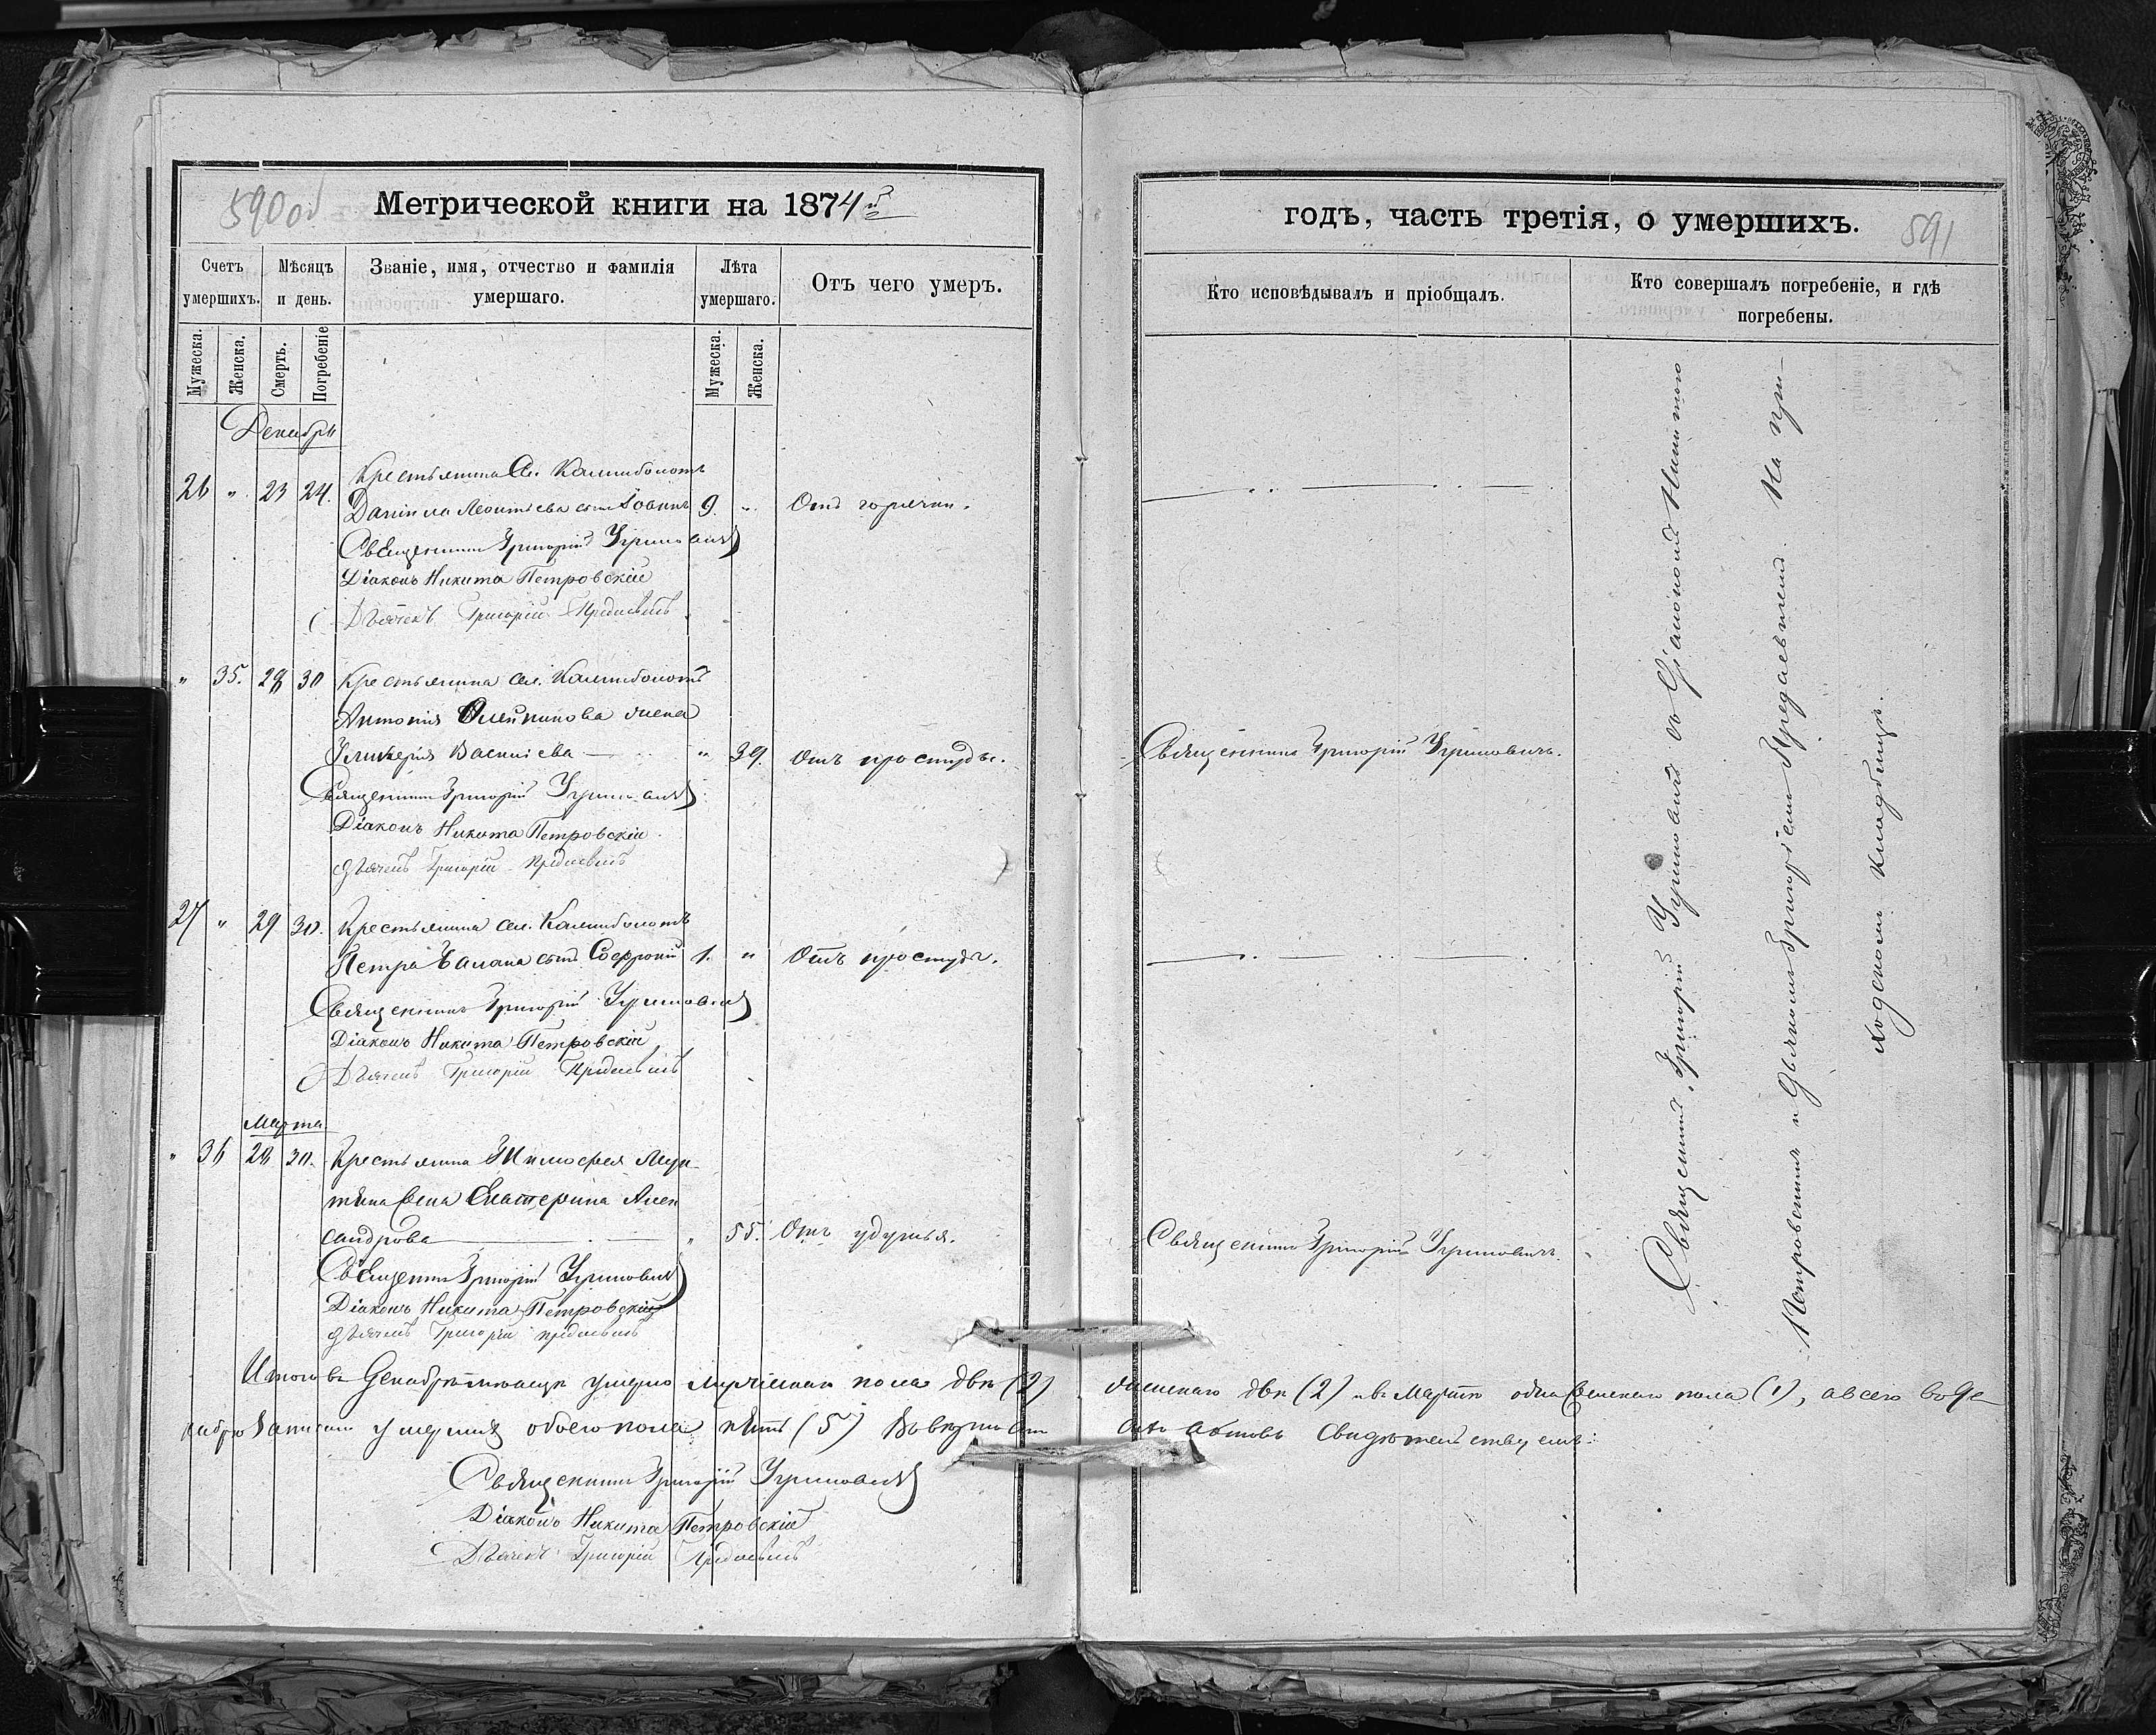 590 об
Метрической книги на 1874 й
Счетъ умершихъ.
Мѣсяцъ и день.
Званіе, имя, отчество и фамилія
умершаго.
Лѣта умершаго.
Отъ чего умеръ.
Мужеска.
Женска.
Смерть.
Погребеніе
Мужеска.
Женска.
Декабрь
Крестьянина Сел. Калниболотъ
26 " 23 24. Даніила Леонтьева сынъ 9. " Отъ горячки.
Священникъ Григорій Угриновичъ
Діаконъ Никита Петровскій
Дьячекъ Григорій
" 35. 28 30 Крестьянина сел. Калниболотъ
Антонія Олейникова жена
Гликерія Васильева " 39. Отъ простуды.
Священникъ Григорій Угриновичъ
Діаконъ Никита Петровскій
Дьячекъ Григорій
27 " 29 30. Крестьянина сел. Калниболотъ
Петра сынъ Софроній 1. " Отъ простуды.
Священникъ Григорій Угриновичъ
Діаконъ Никита Петровскій
Дьячекъ Григорій
Марта
" 36 28 30. Крестьянина Тимофея
жена Екатерина Алек
сандрова " 55. Отъ удушья.
Священникъ Григорій Угриновичъ
Діаконъ Никита Петровскій
Дьячекъ Григорій
Итого въ Декабрѣ мѣсяцѣ умерло мужескаго пола два (2)
кабрѣ записано умершихъ обоего пола пять (5)
Священникъ Григорій Угриновичъ
Діаконъ Никита Петровскій
Дьячекъ Григорій
годъ, часть третія, о умершихъ.
591
Кто исповѣдывалъ и пріобщалъ.
Кто совершалъ погребеніе, и гдѣ
погребены.
Священникъ Григорій Угриновичъ.
Священникъ Григорій Угриновичъ
Священникъ Григорій Угриновичъ съ Діакономъ Никитою
Петровскимъ и Дьячкомъ Григоріемъ На при-
ходскомъ кладбищѣ.
женскаго двѣ (2) и въ Мартѣ одна женскаго пола (1), а всего въ Де
актовъ свидѣтельствуемъ: